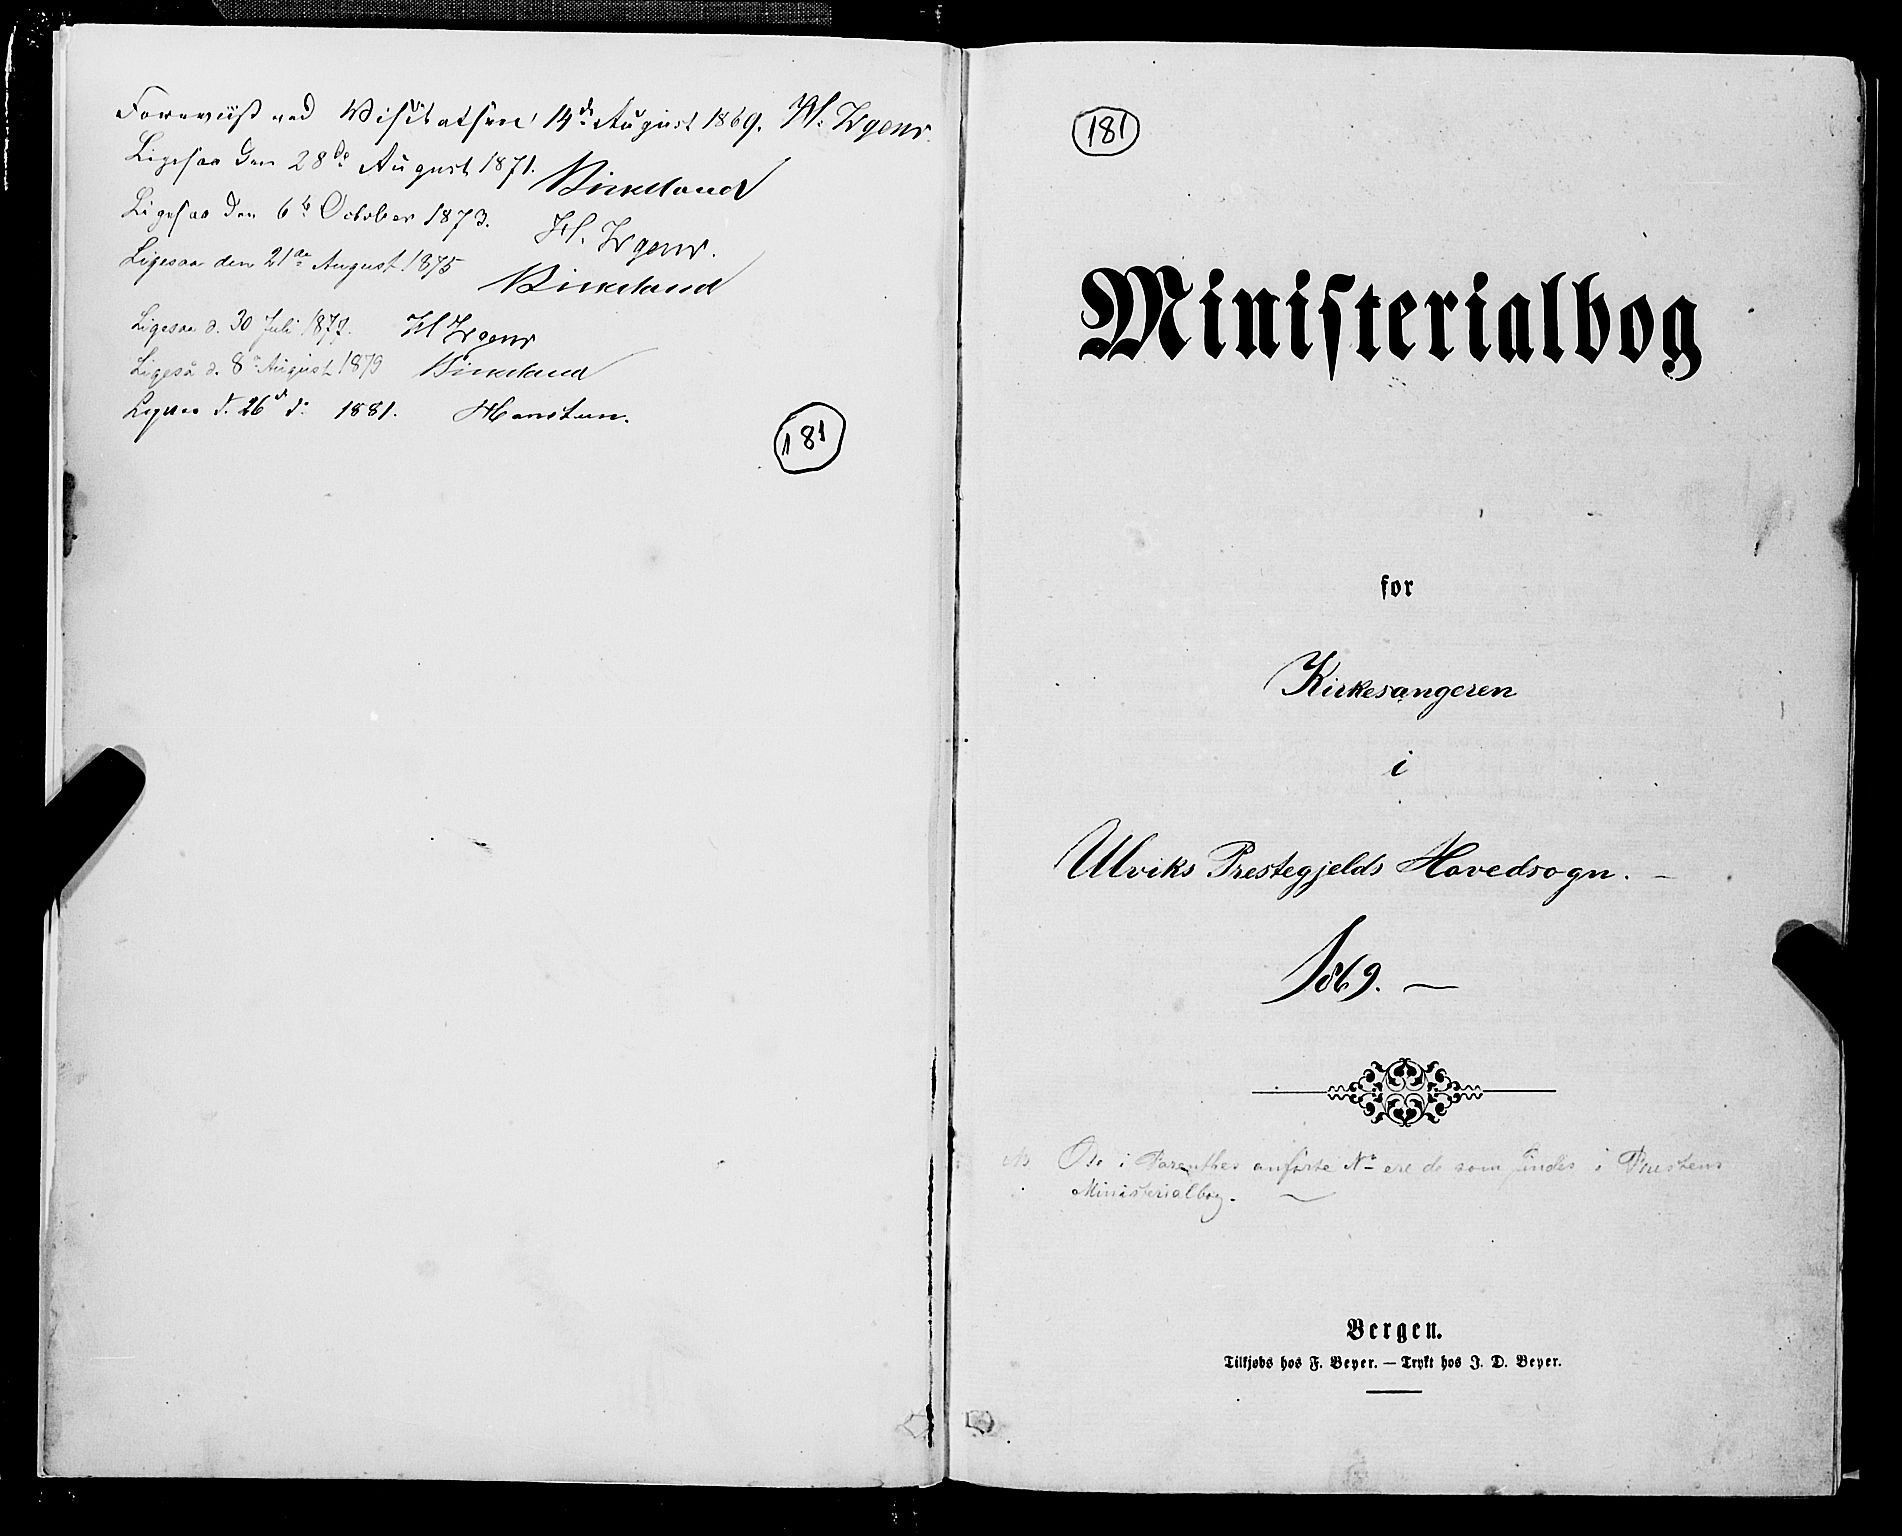 Foreviist ved Visitatsen 14de August 1869. H. Irgens.
Ligesaa den 28de August 1871. Birkeland
Ligesaa den 6te October 1873. H. Irgens.
Ligesaa den 21de August 1875 Birkeland
Ligesaa d. 30 Juli 1877. H Irgens
Ligeså d. 8de August 1879 Birkeland
Ligesaa d. 26d d: 1881.
181
181
Ministerialbog
for
Kirkesangeren
i
Ulviks Prestegjelds Hovedsogn. –
1869. —
De i Parenthes anførte No ere de som findes i Prestens
Ministerialbog. —
Bergen.
Tilkjøbs hos F. Beyer. — Trykt hos J. D. Beyer.